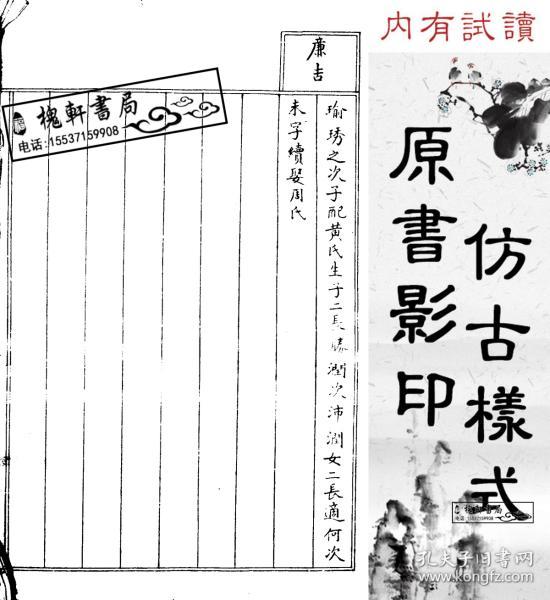 廉吉
瑜琇之次子配黄氏生子二長勝潤次沛潤女二長適何次
未字續娶周氏
槐軒書局
电话:15537159908
内有試讀
原書影印
仿古樣式
槐軒書局
电话:15537159908
孔夫子旧书网
www.kongfz.com